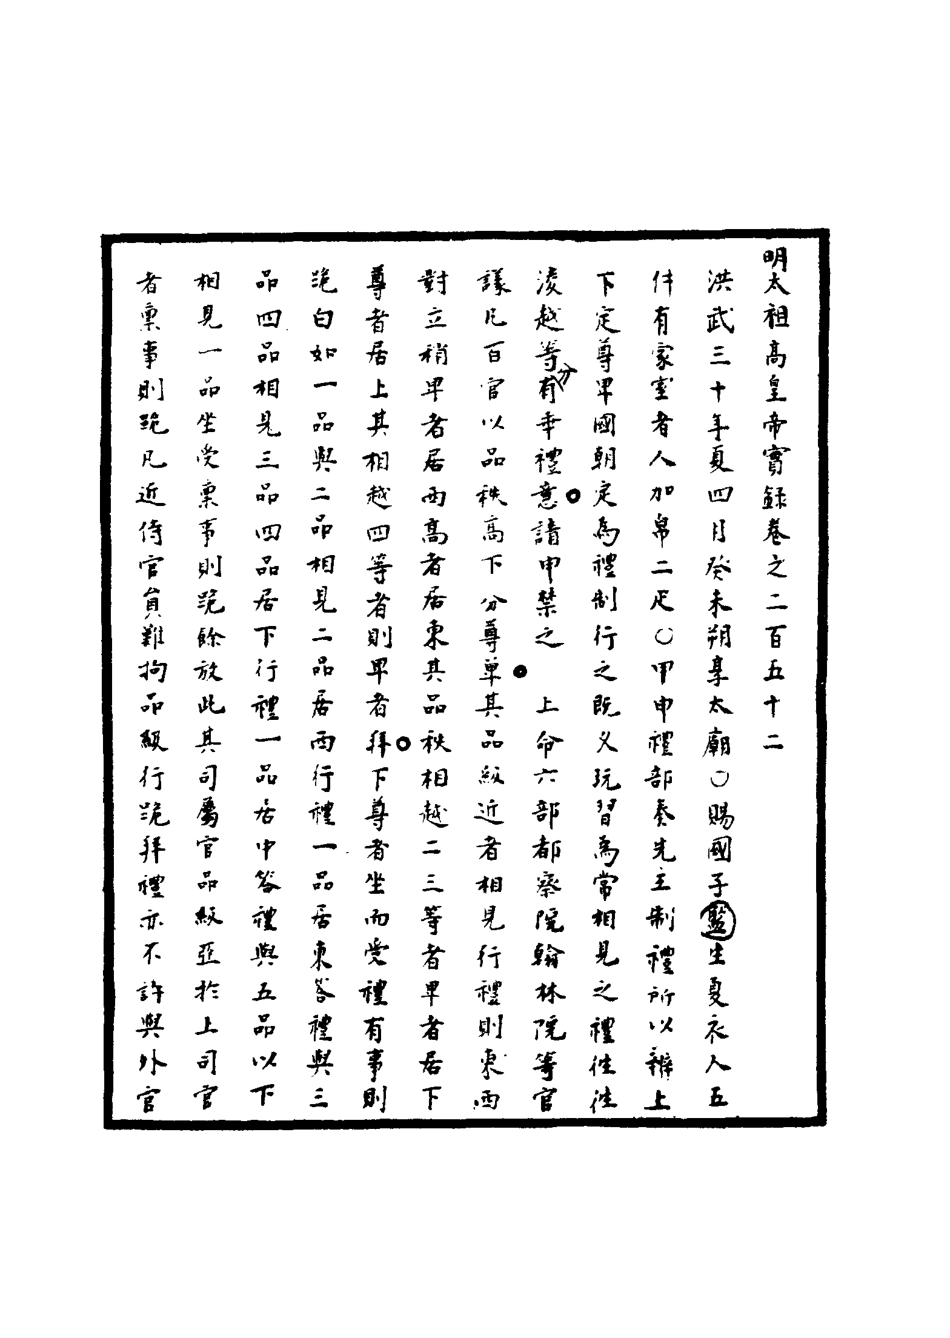 明太祖高皇帝實錄卷之二百五十二
洪武三十年夏四月癸未朔享太廟○賜國子藍生夏衣人五
件有家室者人加帛二疋○甲申禮部奏先王制禮所以辨上
下定尊卑國朝定為禮制行之既乂玩習為常相見之禮往往
淩越等分有乖禮意請申禁之　上命六部都察院翰林院等官
議凡百官以品秩高下分尊卑其品級近者相見行禮則東西
對立稍卑者居西高者居東其品秩相越二三等者卑者居下
尊者居上其相越四等者則卑者拜下尊者坐而受禮有事則
跪白如一品與二品相見二品居西行禮一品居東答禮與三
品四品相見三品四品居下行禮一品居中答禮與五品以下
相見一品坐受稟事則跪餘放此其司屬官品級亞於上司官
者稟事則跪凡近侍官員難拘品級行跪拜禮亦不許與外官